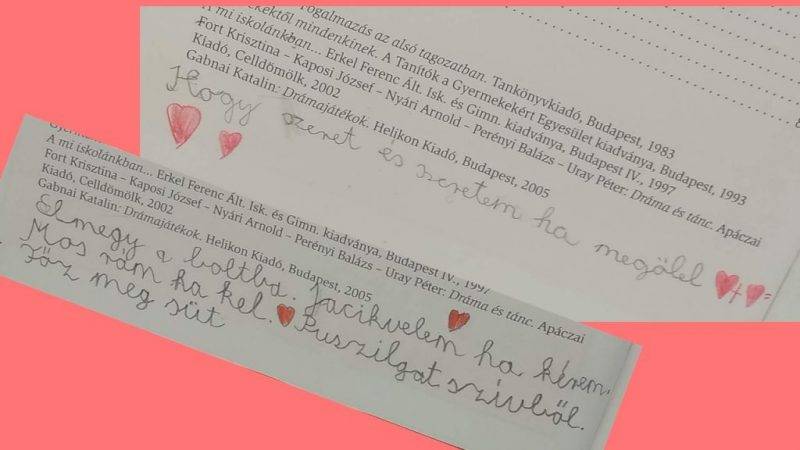 ogalmazás az alsó tagozatban. Tankönyvkiadó, Budapest, 1983
mindenkinek. A Tanítók a Gyermekekért Egyesület kiadványa, Budapest, 1993
A mi iskolánkban... Erkel Ferenc Ált. Isk. és Gimn. kiadványa, Budapest IV., 1997
Fort Krisztina – Kaposi József – Nyári Arnold – Perényi Balázs – Uray Péter: Dráma és tánc. Apáczai
Kiadó, Celldömölk, 2002
Gabnai Katalin: Drámajátékok. Helikon Kiadó, Budapest, 2005
Hogy szeret és szeretem ha megölel
A mi iskolánkban... Erkel Ferenc Ált. Isk. és Gimn. kiadványa, Budapest IV., 1997
Fort Krisztina – Kaposi József – Nyári Arnold – Perényi Balázs – Uray Péter: Dráma és tánc. Apáczai
Kiadó, Celldömölk, 2002
Gabnai Katalin: Drámajátékok. Helikon Kiadó, Budapest, 2005
Elmegy a boltba. Jacikvelem ha kérem.
Mos rám ha kel. Puszilgat szívből.
Főz meg süt